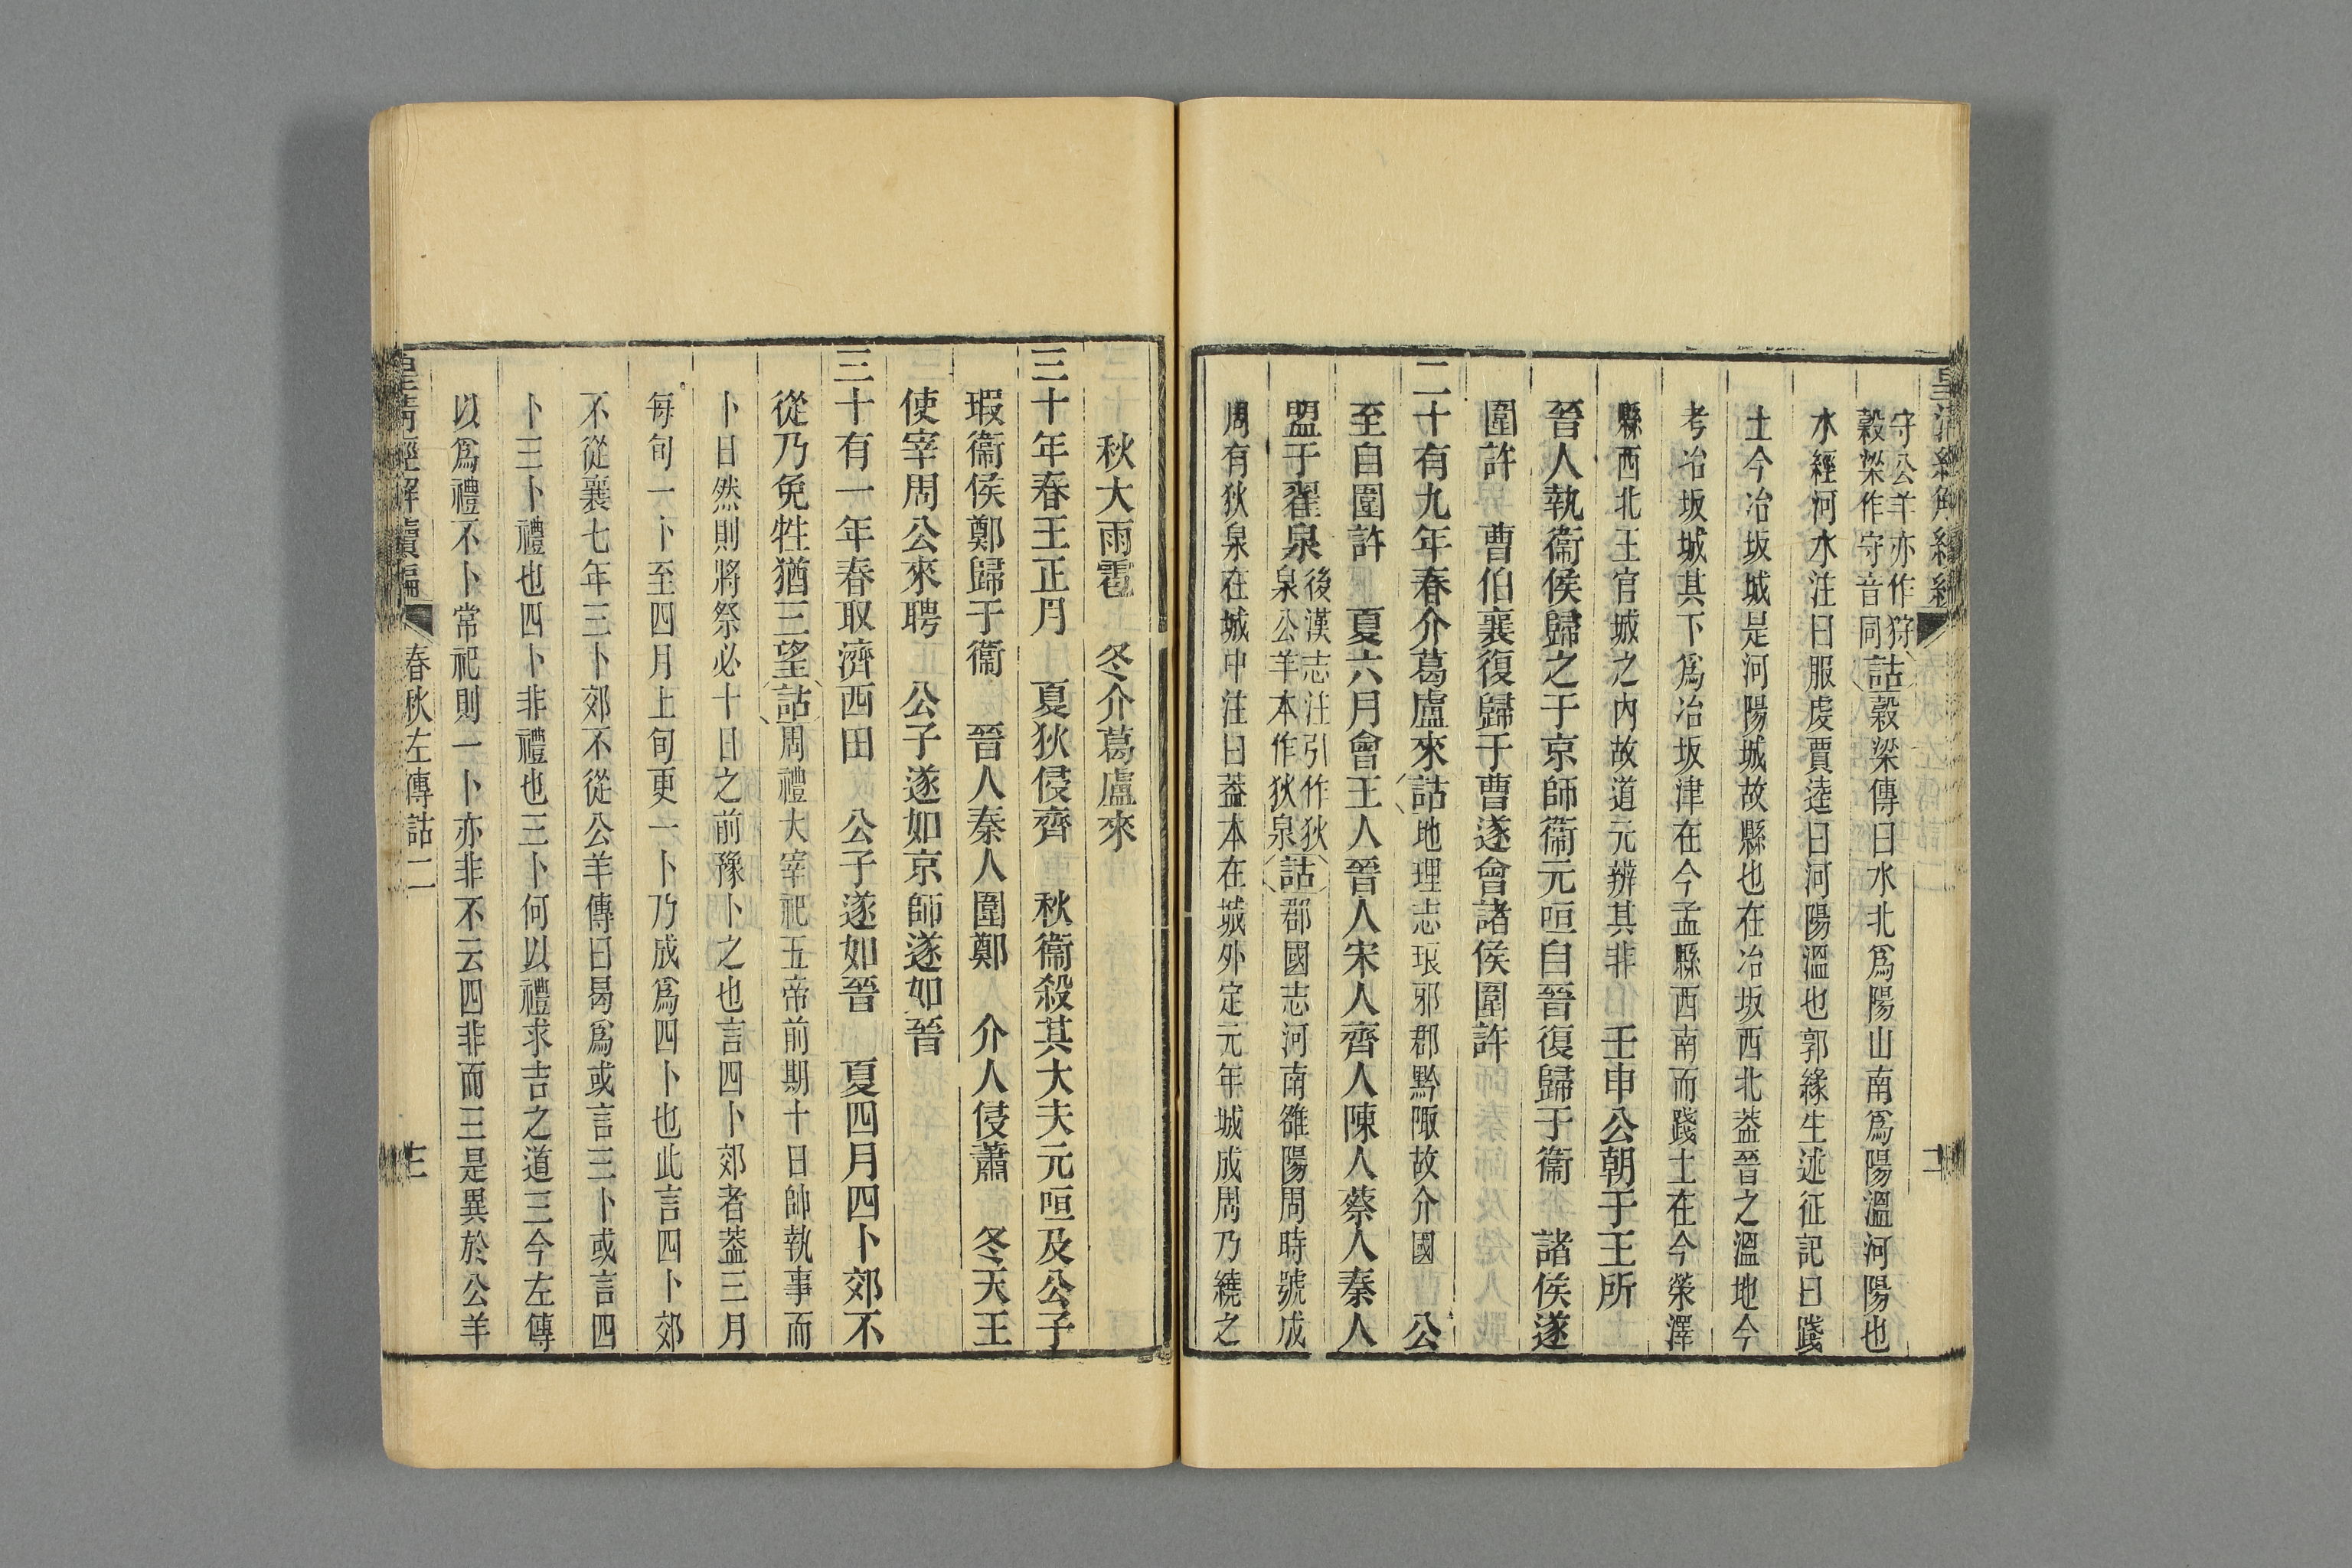 守公羊亦作狩
穀梁作守音同
詁穀梁傳曰水北爲陽山南爲陽溫河陽也
水經河水注曰服虔賈逵曰河陽溫也郭緣生述征記曰踐
土今冶坂城是河陽城故縣也在冶坂西北葢晉之溫地今
考冶坂城其下爲冶坂津在今孟縣西南而踐土在今滎澤
縣西北王官城之內故道元辨其非　壬申公朝于王所
晉人執衞侯歸之于京師衞元咺自晉復歸于衞　諸侯遂
圍許　曹伯襄復歸于曹遂會諸侯圍許
二十有九年春介葛盧來詁地理志琅邪郡黔陬故介國　公
至自圍許　夏六月會王人晉人宋人齊人陳人蔡人秦人
盟于翟泉
後漢志注引作狄
泉公羊本作狄泉
詁郡國志河南雒陽周時號成
周有狄泉在城中注曰葢本在城外定元年城成周乃繞之
秋大雨雹　冬介葛盧來
三十年春王正月　夏狄侵齊　秋衞殺其大夫元咺及公子
瑕衞侯鄭歸于衞　晉人秦人圍鄭　介人侵蕭　冬天王
使宰周公來聘　公子遂如京師遂如晉
三十有一年春取濟西田　公子遂如晉　夏四月四卜郊不
從乃免牲猶三望詁周禮大宰祀五帝前期十日帥執事而
卜日然則將祭必十日之前豫卜之也言四卜郊者葢三月
每旬一卜至四月上旬更一卜乃成爲四卜也此言四卜郊
不從襄七年三卜郊不從公羊傳曰曷爲或言三卜或言四
卜三卜禮也四卜非禮也三卜何以禮求吉之道三今左傳
以爲禮不卜常祀則一卜亦非不云四非而三是異於公羊
皇清經解續編
春秋左傳詁二
三